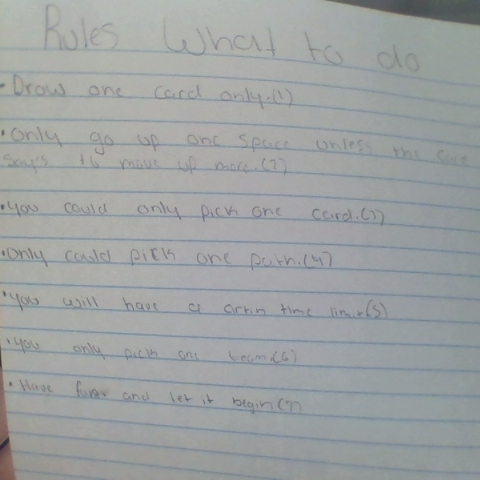 Rules What to do
• Draw one card only.(1)
• Only go up one space unless the card
say's to move up more.(2)
• You could only pick one card.(3)
• Only could pick one path.(4)
• You will have a time limit(5)
• You only pick one team(6)
• Have and let it begin(7)